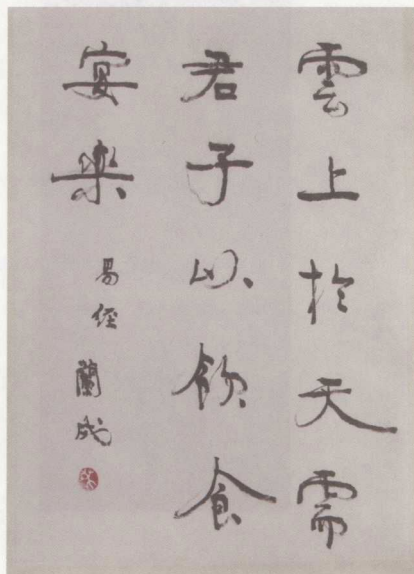 雲上於天需
君子以飲食
宴楽
易経
蘭成